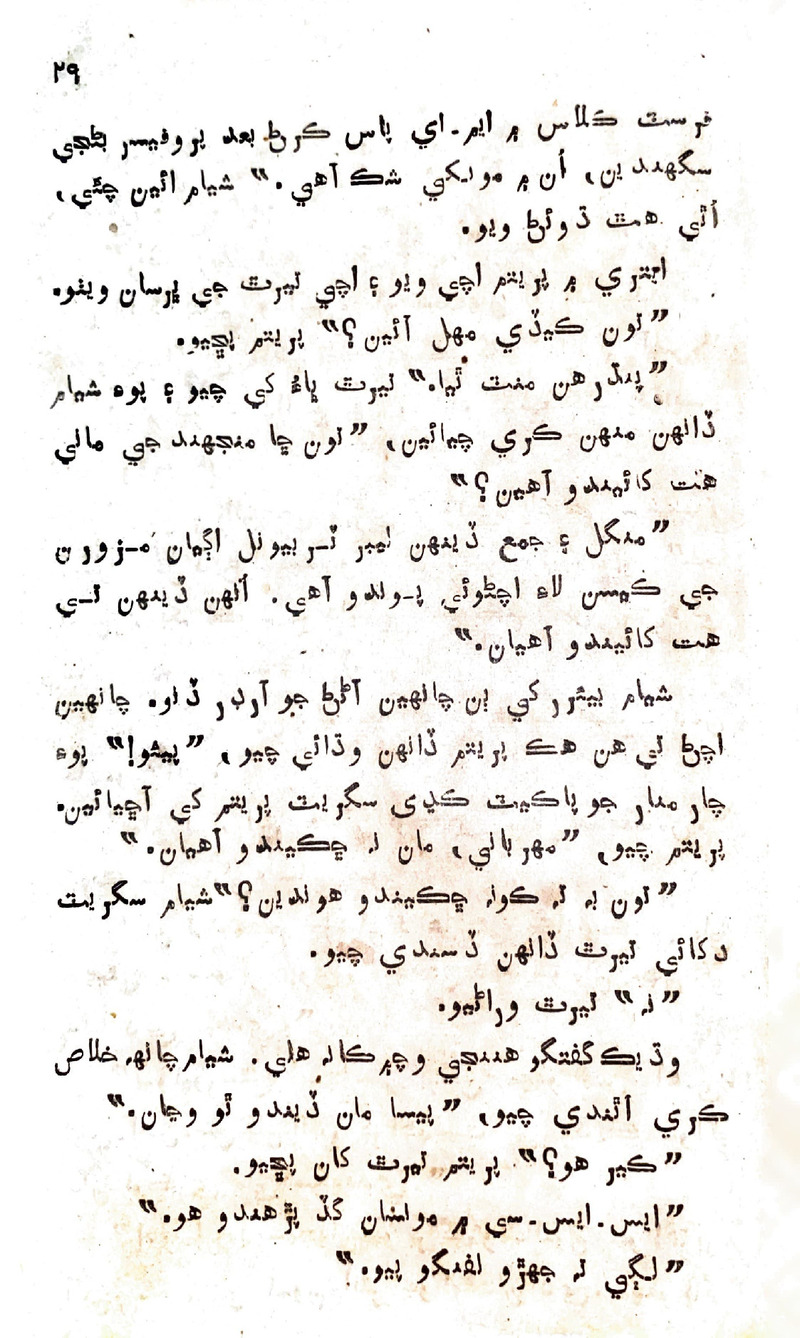 ۲۹
فرسٽ ڪلاس ۾ ايم۔اي پاس ڪرڻ بعد پروفيسر بڻجي
سگهندين، اُن ۾ مونکي شڪ آهي.“ شيام ائين چئي،
اُٿي هٿ ڌوئڻ ويو.
ايتري ۾ پريتم اچي ويو ۽ اچي تيرٿ جي ڀرسان ويٺو.
”تون ڪيڏي مهل آئين؟“ پريتم پڇيو.
”پندرهن منٽ ٿيا.“ تيرٿ ڀاءُ کي چيو ۽ پوءِ شيام
ڏانهن منهن ڪري چيائين، ”تون ڇا منجهند جي ماني
هت کائيندو آهين؟“
”منگل ۽ جمع ڏينهن ليبر ٽربيونل اڳيان مزورن
جي ڪيسن لاءِ اچڻوئي پوندو آهي. اُنهن ڏينهن تي
هت کائيندو آهيان.“
شيام بيئرر کي ٻن چانهين آڻڻ جو آرڊر ڏنو. چانهين
اچڻ تي هن هڪ پريتم ڏانهن وڌائي چيو، ”پيئو!“ پوءِ
چار منار جو پاڪيٽ ڪڍي سگريٽ پريتم کي آڇيائين.
پريتم چيو، ”مهرباني، مان نہ ڇڪيندو آهيان.“
”تون بہ تہ ڪونہ ڇڪيندو هوندين؟“ شيام سگريٽ
دکائي تيرٿ ڏانهن ڏسندي چيو.
”نہ“ تيرٿ وراڻيو.
وڌيڪ گفتگو هننجي وچ ۾ ڪانہ هلي. شيام چانهہ خلاص
ڪري اُٿندي چيو، ”پيسا مان ڏيندو ٿو وڃان.“
”ڪير هو؟“ پريتم تيرٿ کان پڇيو.
”ايس۔ايس۔سي ۾ مونسان گڏ پڙهندو هو.“
”لڳي تہ جهڙو لفنگو پيو.“